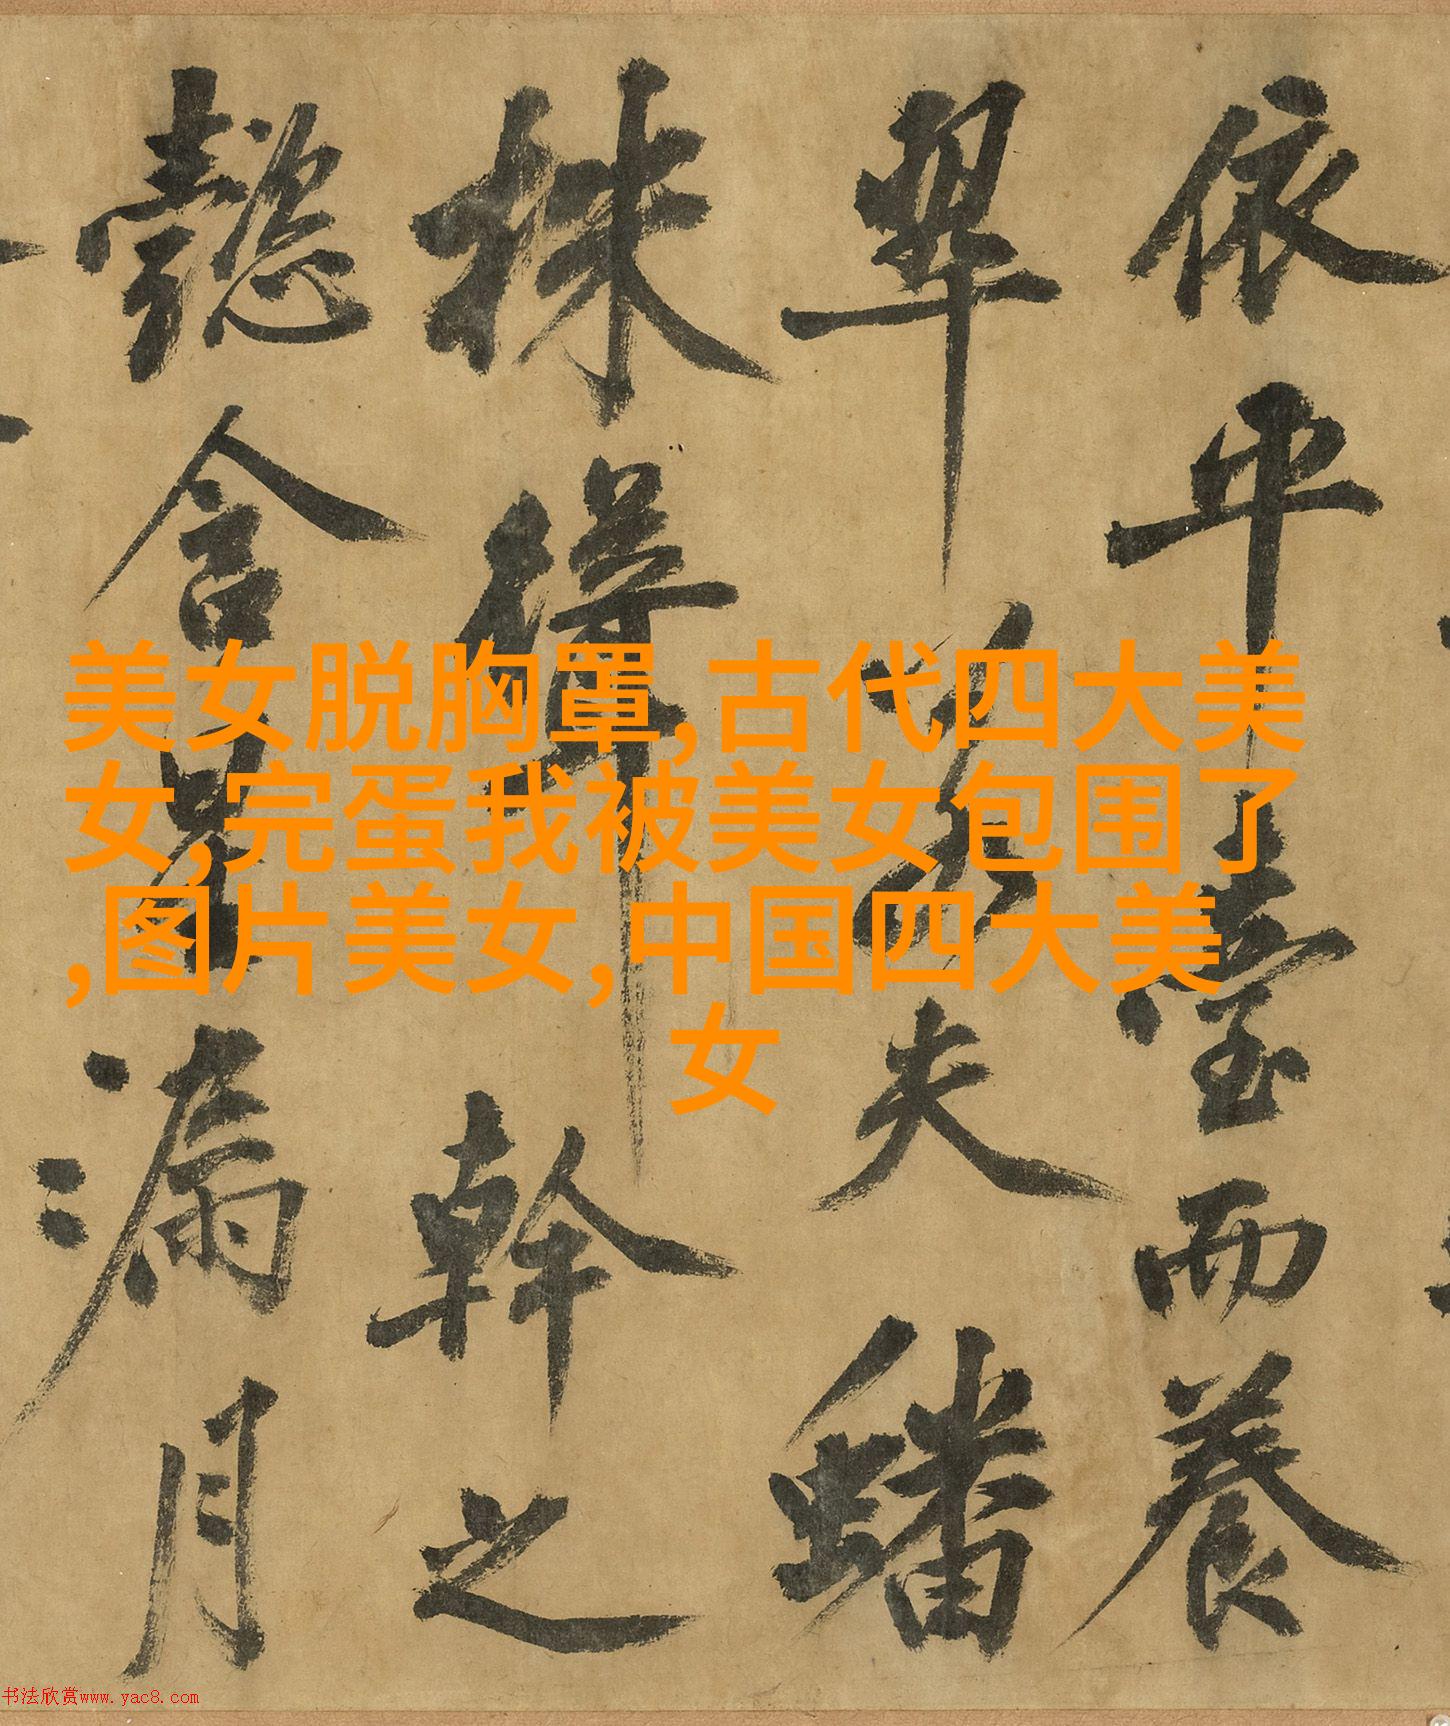 依平臺而養
翠夫蟠
株幹之
懿含星漏月
美女脱胸罩,古代四大美
女,完蛋我被美女包围了
,图片美女,中国四大美
女
书法欣赏www.yac8.com